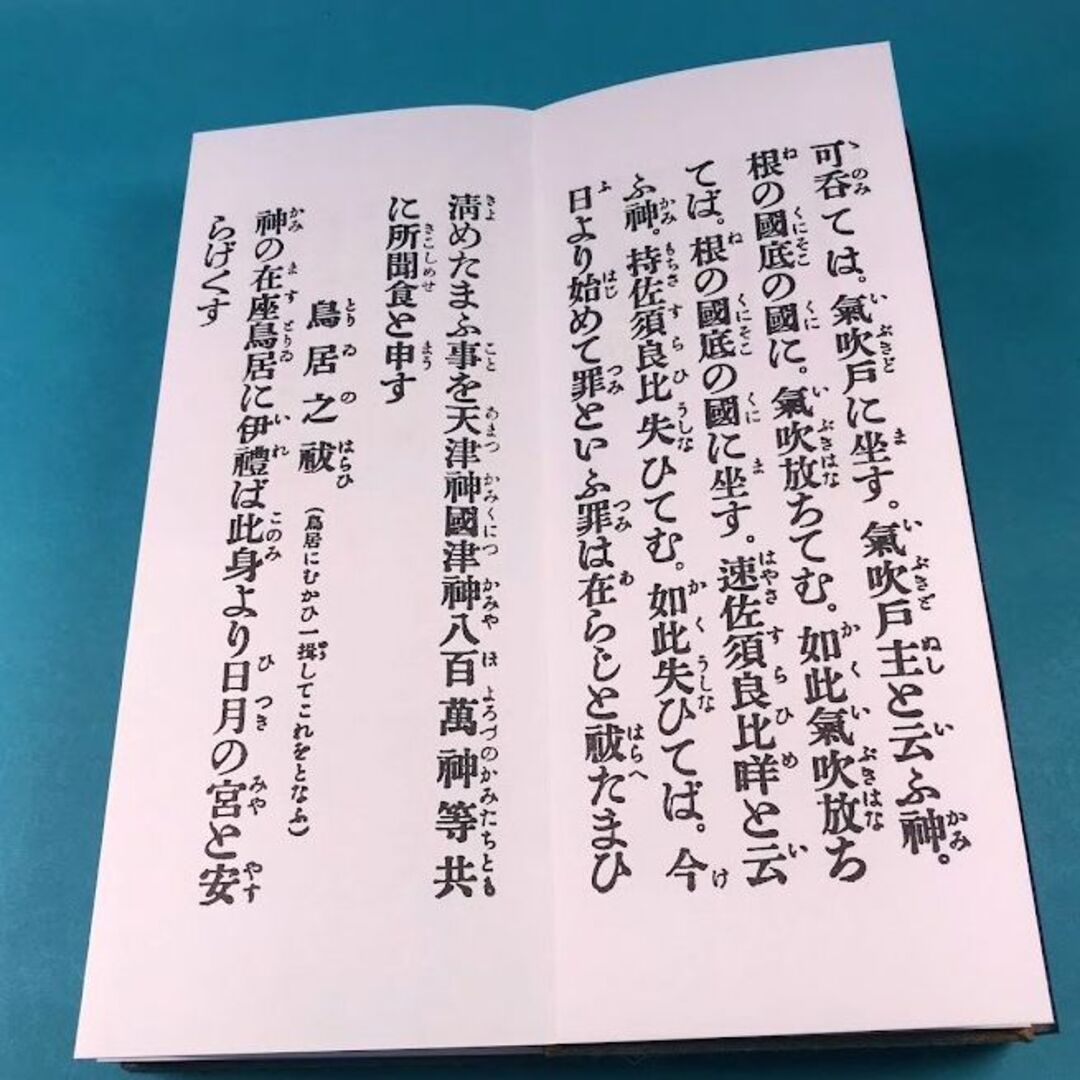 可呑ては。氣吹戸に坐す。氣吹戸主と云ふ神。
根の國底の國に。氣吹放ちてむ。如此氣吹放ち
てば。根の國底の國に坐す。速佐須良比咩と云
ふ神。持佐須良比失ひてむ。如此失ひてば。今
日より始めて罪といふ罪は在らじと祓たまひ
淸めたまふ事を天津神國津神八百萬神等共
に所聞食と申す
鳥居之祓(鳥居にむかひ一揖してこれをとなふ)
神の在座鳥居に伊禮ば此身より日月の宮と安
らげくす